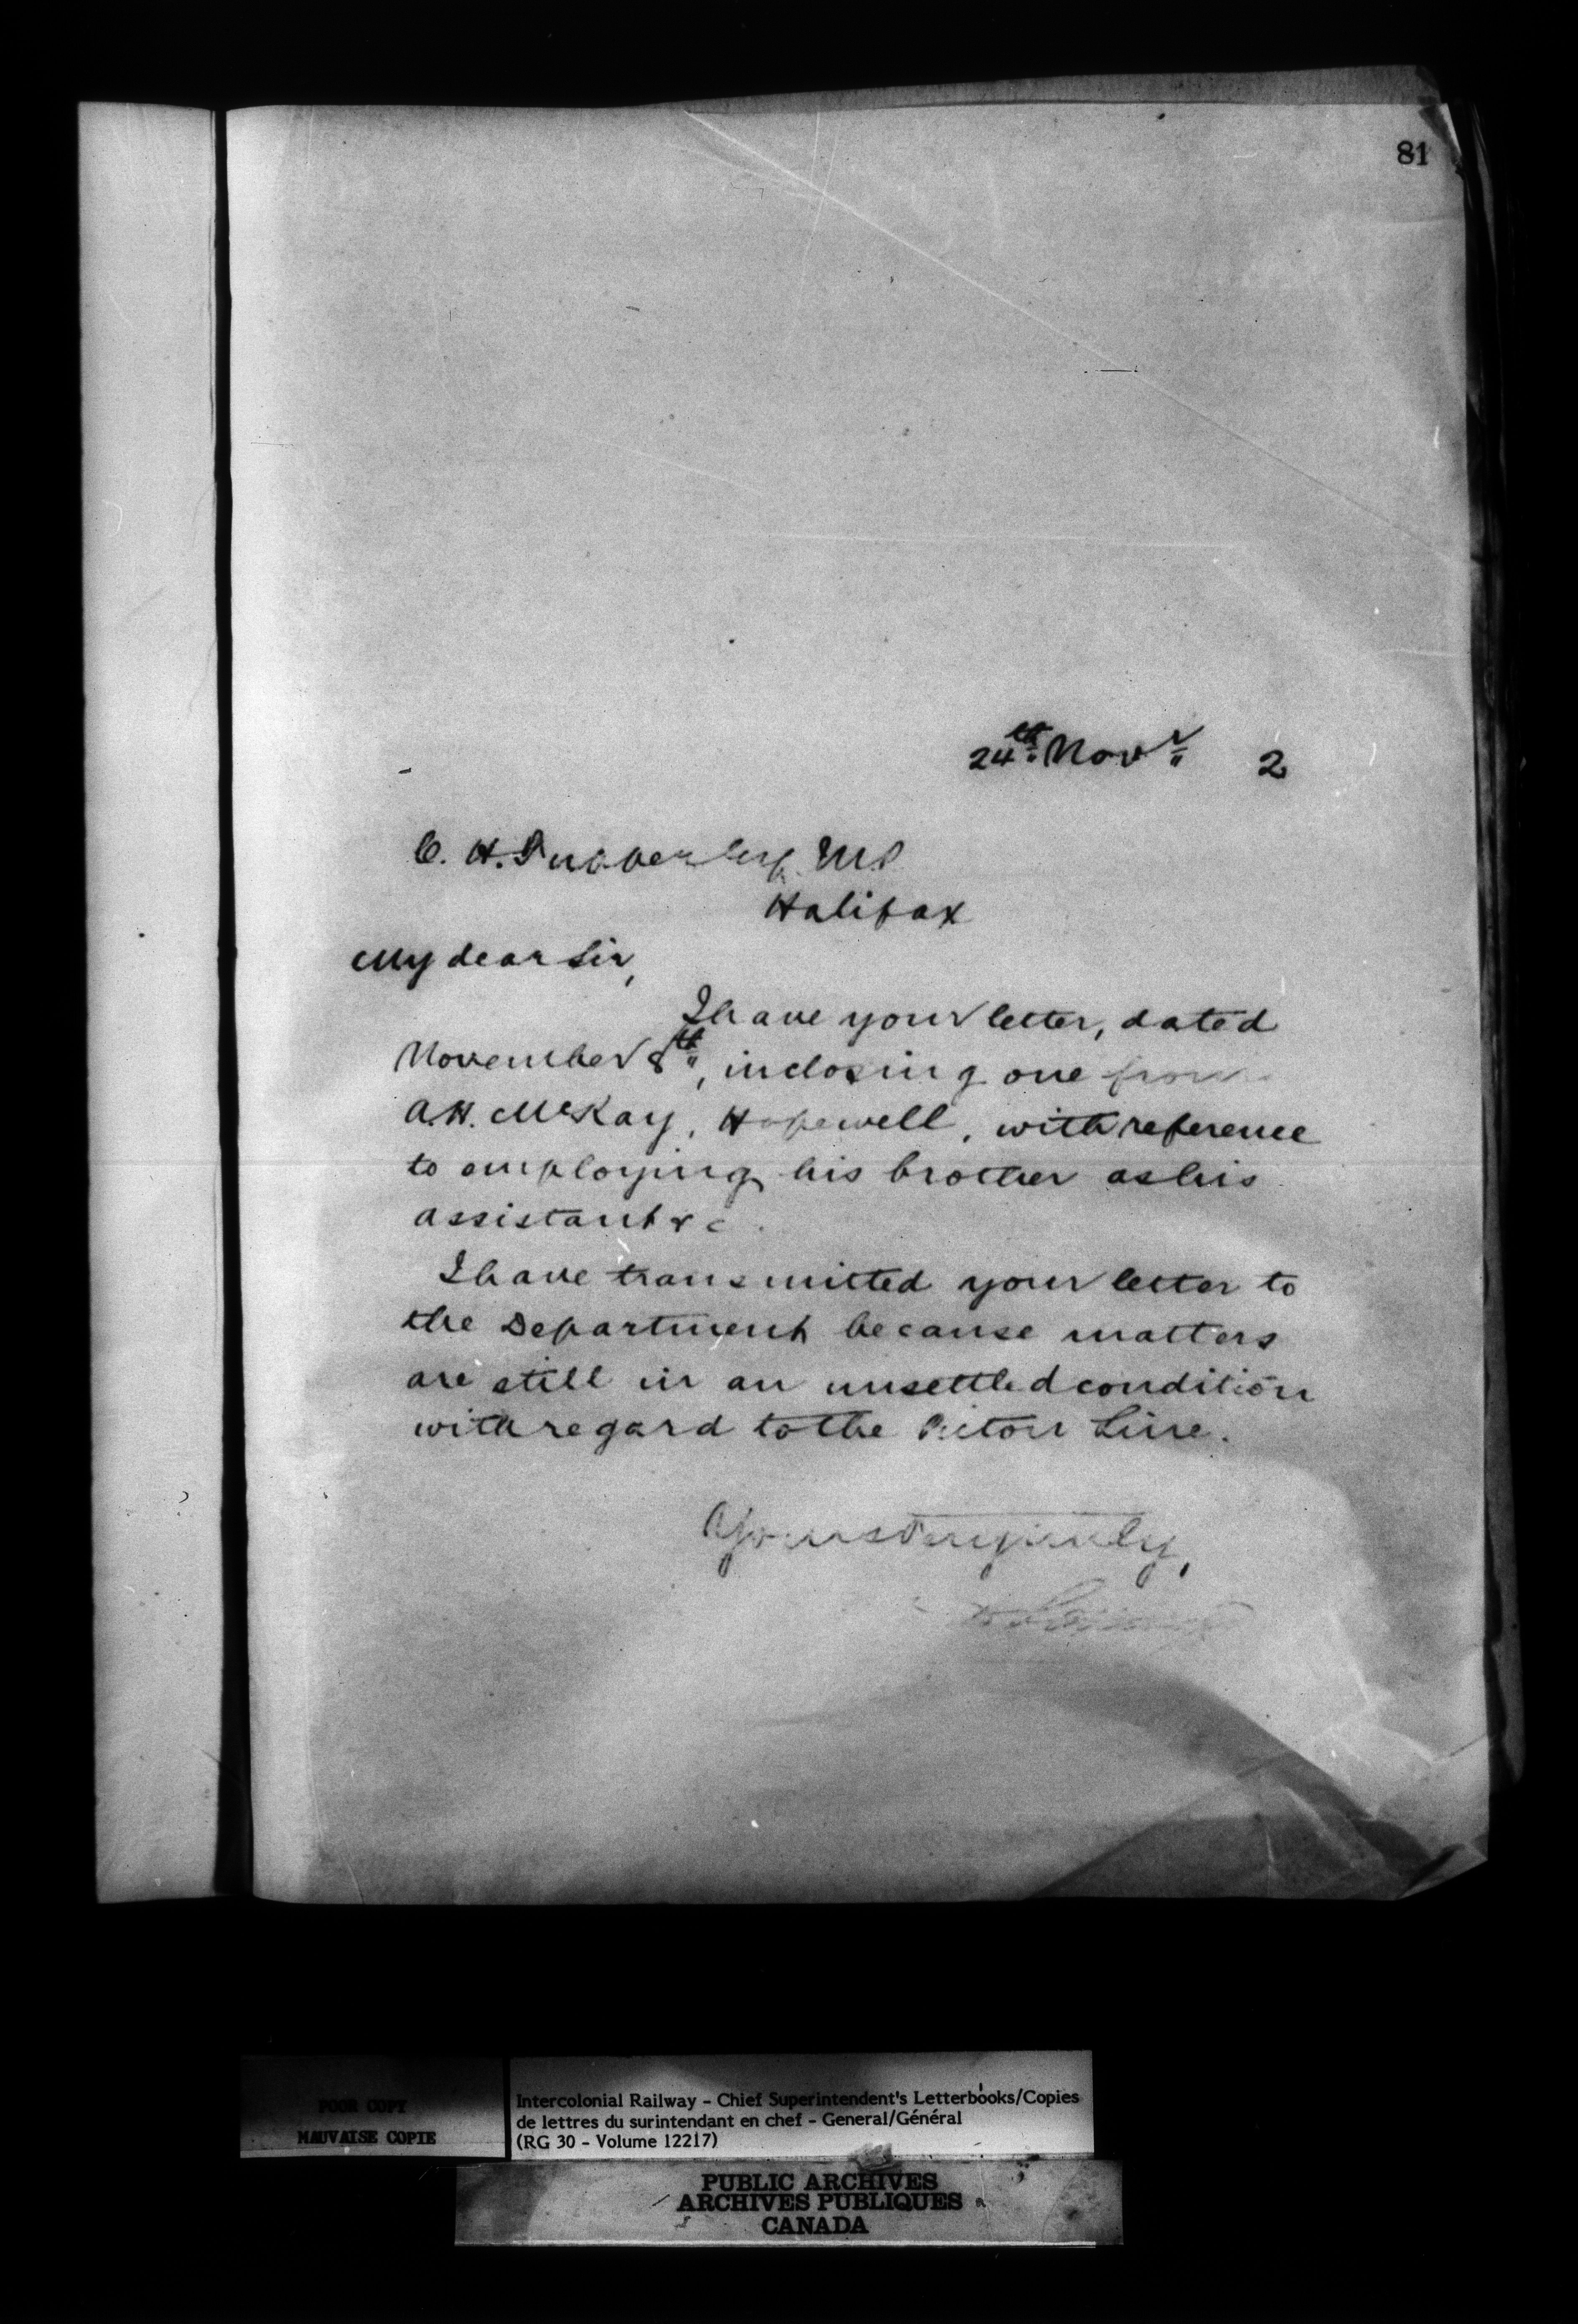 81
24th Novr 2
C. H. Tupper Esq. M.P.
Halifax
My dear Sir,
I have your letter, dated
November 8th, inclosing one from
A.H. McKay, Hopewell, with reference
to employing his brother as his
assistant &c.
I have transmitted your letter to
the Department because matters
are still in an unsettled condition
with regard to the Pictou Line.
Yours very truly,
POOR COPY
MAUVAISE COPIE
Intercolonial Railway - Chief Superintendent's Letterbooks/Copies
de lettres du surintendant en chef - General/Général
(RG 30 - Volume 12217)
PUBLIC ARCHIVES
ARCHIVES PUBLIQUES
CANADA